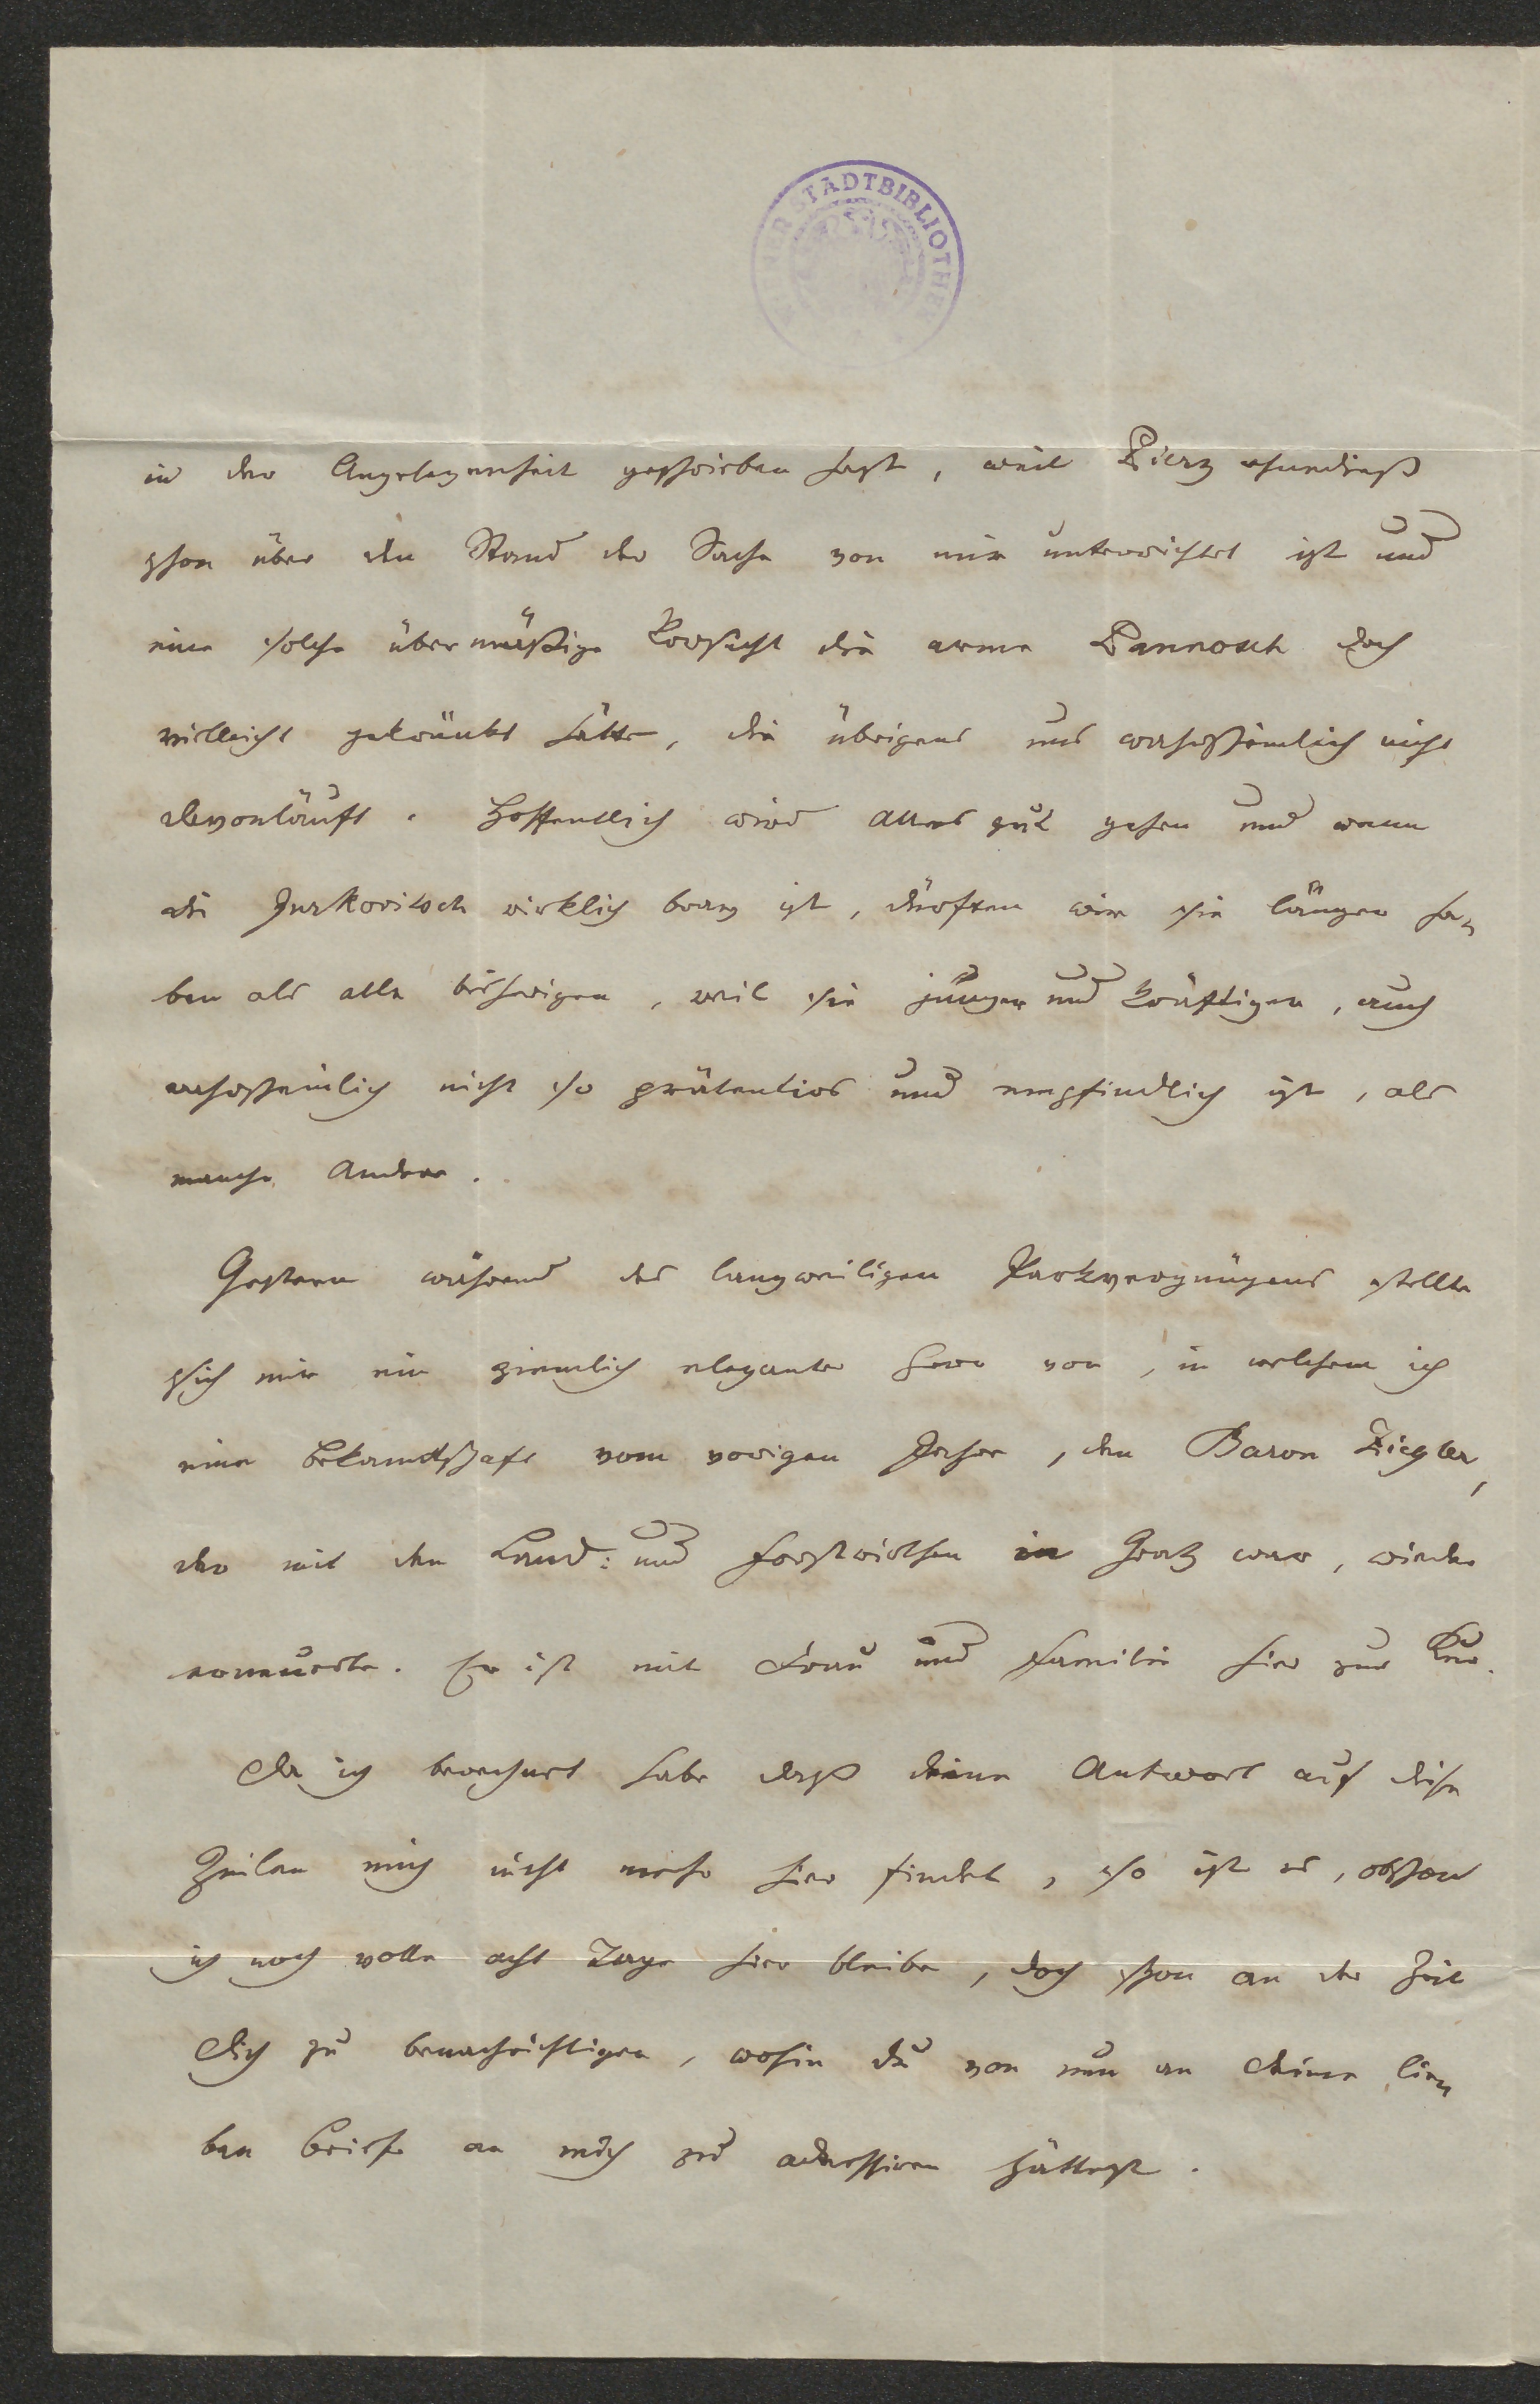 WIENER STADTBIBLIOTHEK
in der Angelegenheit geschrieben hast, weil Pierz ohnedieß
schon über den Stand der Sache von mir unterrichtet ist und
eine solche übermäßige Vorsicht die arme Pannosch doch
vielleicht gekränkt hätte, die übrigens uns wahrscheinlich nicht
davonläuft. Hoffentlich wird Alles gut gehen und wenn
die Jurkovitsch wirklich brav ist, dürften wir sie länger ha-
ben als alle bisherigen, weil sie jünger und kräftiger, auch
wahrscheinlich nicht so prätentios und empfindlich ist, als
manche Andere.
Gestern während des langweiligen Parkvergnügens stellte
sich mir ein ziemlich eleganter Herr vor, in welchem ich
eine Bekanntschaft vom vorigen Jahre, den Baron Ziegler,
der mit den Land: und Forstwirthen in Gratz war, wieder
erneuerte. Er ist mit Frau und Familie hier zur Kur.
Da ich berechnet habe daß deine Antwort auf diese
Zeilen mich nicht mehr hier findet, so ist es, obschon
ich noch volle acht Tage hier bleibe, doch schon an der Zeit
Dich zu benachrichtigen, wohin du von nun an deine lie-
ben Briefe an mich zu adressiren hättest.